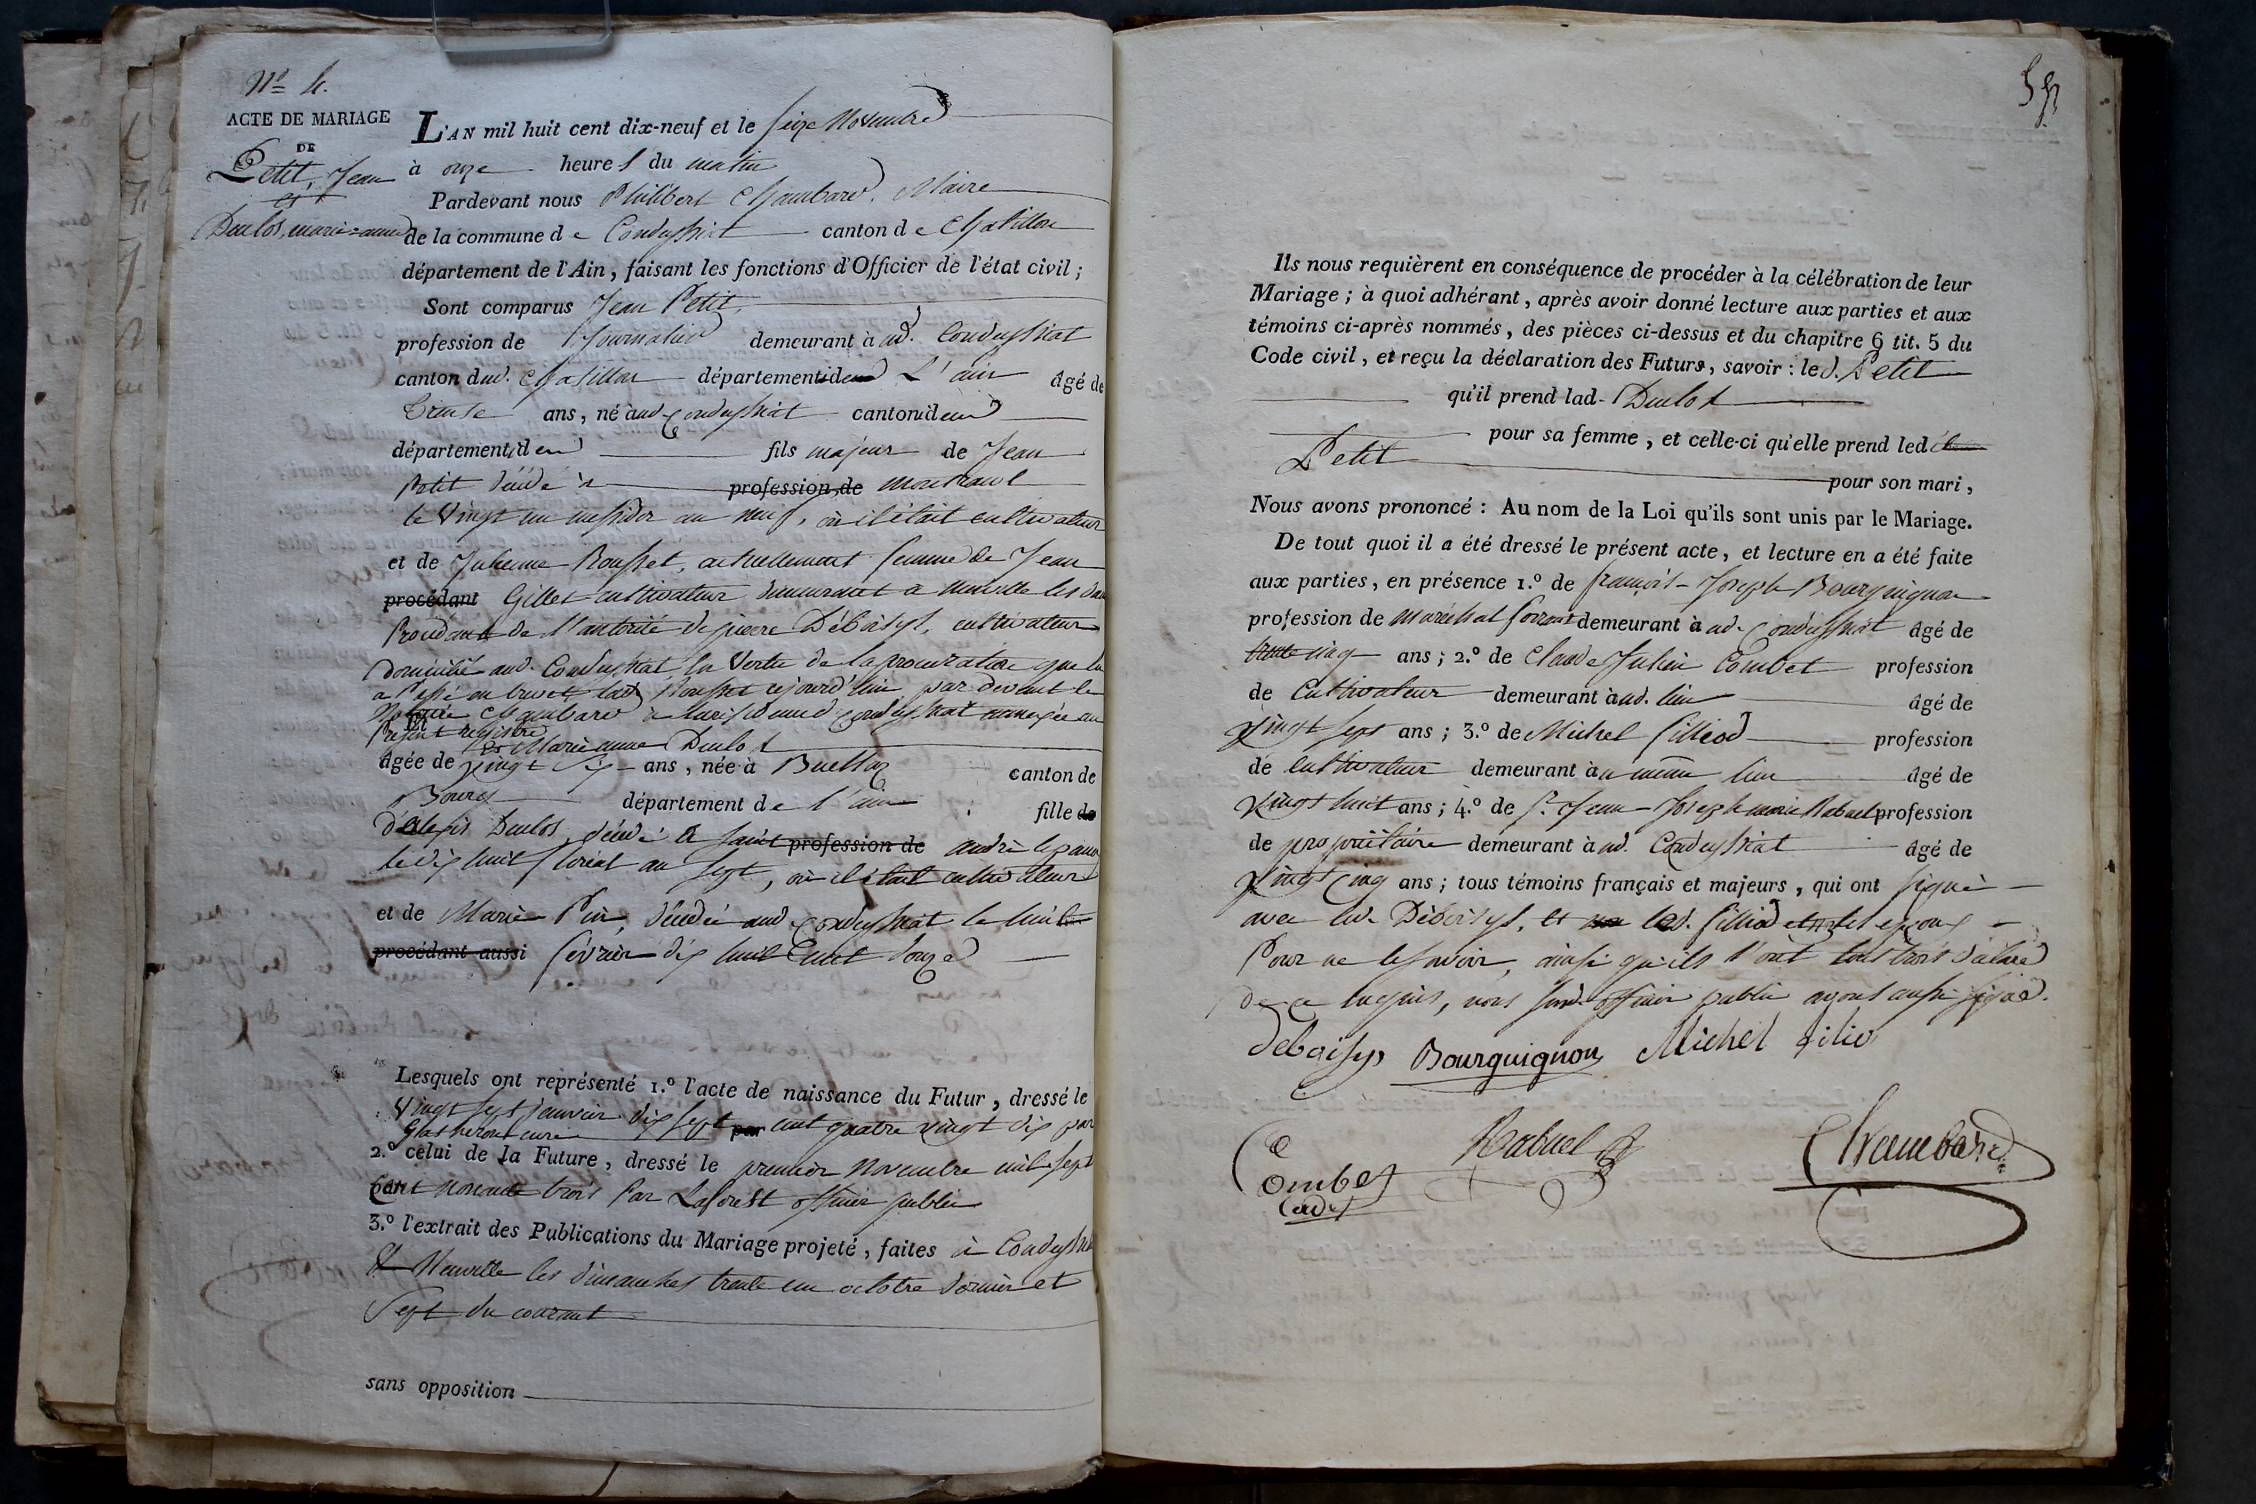 N.º 4.
ACTE DE MARIAGE
DE
Petit, Jean
et
Duclos, marie-anne
L'AN mil huit cent dix-neuf et le seize Novembre
à onze heures du matin
Pardevant nous Philibert Chambard, Maire
de la commune de Condeyssiat canton de Chatillon
département de l'Ain, faisant les fonctions d'Officier de l'état civil;
Sont comparus Jean Petit,
profession de Journalier demeurant à ud. Condeyssiat
canton dud. Chatillon département idem L'ain âgé de
trente ans, né aud Condeyssiat canton idem
département idem fils majeur de Jean
Petit décédé à profession de montracol
le vingt un messidor an neuf, où il était cultivateur
et de Julienne Rousset, actuellement femme de Jean
procédant Gillet cultivateur demeurant à neuville les dames
Procédant de l'autorité de pierre Déboisys, cultivateur
domicilié aud. Condeyssiat, en vertu de la procuration que lui
a passé en brevet lad. Rousset cejourd'hui par devant le
Notaire Chambard à Condeyssiat annexée au
Présent registre
Et Marie anne Duclos
âgée de vingt six ans, née à Buellaz canton de
Bourg département de l'ain fille de
d'alexis Duclos, décédé à saint profession de andré le panoux
le dix huit floréal an sept, où il était cultivateur
et de Marie Pin, décédée aud Condeyssiat le huit
procédant aussi février dix huit cent douze
Lesquels ont représenté 1.º l'acte de naissance du Futur, dressé le
vingt sept janvier dix sept par cent quatre vingt dix par
curé
2.º celui de la Future, dressé le premier Novembre mil sept
cent nonante trois par Laforest officier public
3.º l'extrait des Publications du Mariage projeté, faites à Condeyssiat
et Neuville les dimanches trente un octobre dernier et
sept du courant
sans opposition
Ils nous requièrent en conséquence de procéder à la célébration de leur
Mariage; à quoi adhérant, après avoir donné lecture aux parties et aux
témoins ci-après nommés, des pièces ci-dessus et du chapitre 6 tit. 5 du
Code civil, et reçu la déclaration des Futurs, savoir: led. Petit
qu'il prend lad. Duclos
pour sa femme, et celle-ci qu'elle prend led
Petit
pour son mari,
Nous avons prononcé: Au nom de la Loi qu'ils sont unis par le Mariage.
De tout quoi il a été dressé le présent acte, et lecture en a été faite
aux parties, en présence 1.º de françois-Joseph Bourguignon
profession de maréchal ferrant demeurant à ud. Condeyssiat âgé de
trente cinq ans; 2.º de Claude Julien Combet profession
de Cultivateur demeurant à ud. lieu âgé de
vingt sept ans; 3.º de Michel filliod profession
de cultivateur demeurant à u même lieu âgé de
vingt huit ans; 4.º de S.r Jean-Joseph marie Rabuel profession
de propriétaire demeurant à ud. Condeyssiat âgé de
vingt cinq ans; tous témoins français et majeurs, qui ont signé
avec led. Déboisys, et led. filliod et les époux
Pour ne le savoir, ainsi qu'ils l'ont tous trois déclaré
de ce enquis, nous susd. officier public ayons aussi signé.
deboisys Bourguignon Michel filio
Combet
cadet
Rabuel
Chambard